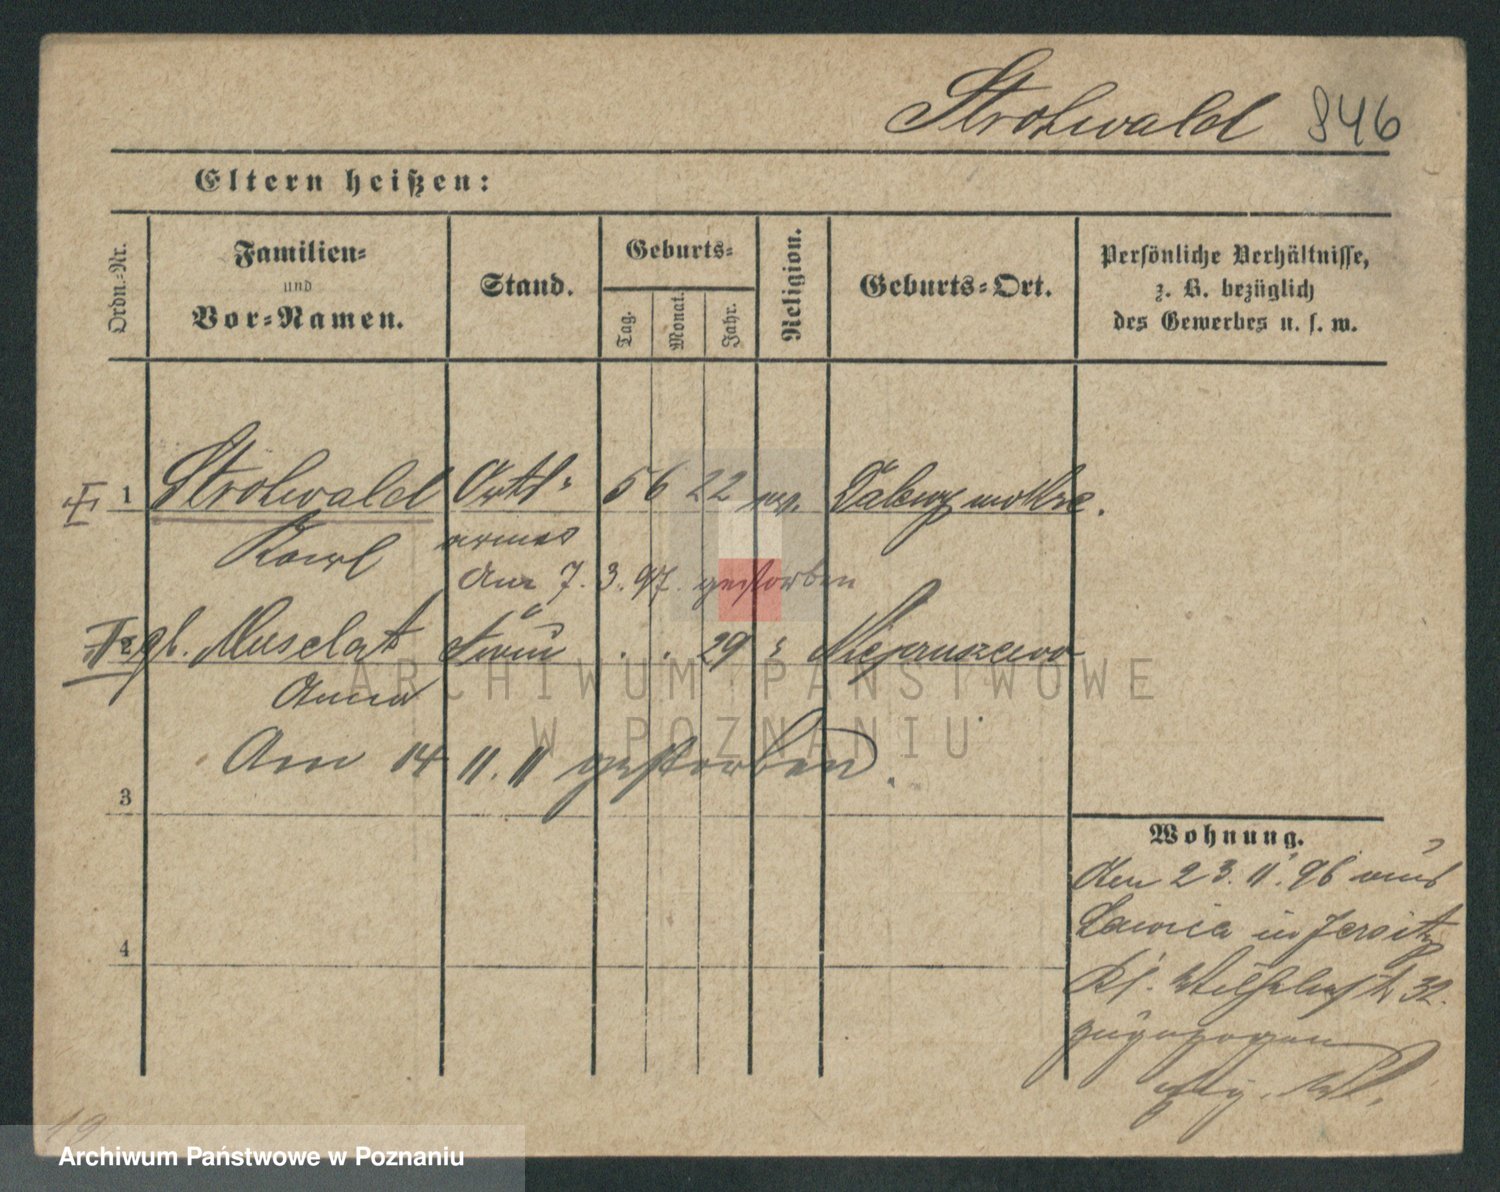 Strohwald 846
Eltern heißen:
Ordn.-Nr.
Familien-
und
Vor-Namen.
Stand.
Geburts-
Tag.
Monat.
Jahr.
Religion.
Geburts-Ort.
Persönliche Verhältnisse,
z. B. bezüglich
des Gewerbes u. s. w.
1 Strohwald Orts- 5 6 22
Karl armer
Am 7. 3. 97. gestorben
gb. Musclat Frau . . 29
Anna
Am 14 11. 11 gestorben.
3
4
Wohnung.
Am 23. 11. 96 aus
Lawica in Jersitz
Kl. 32.
zugezogen
19
ARCHIWUM PAŃSTWOWE
W POZNANIU
Archiwum Państwowe w Poznaniu